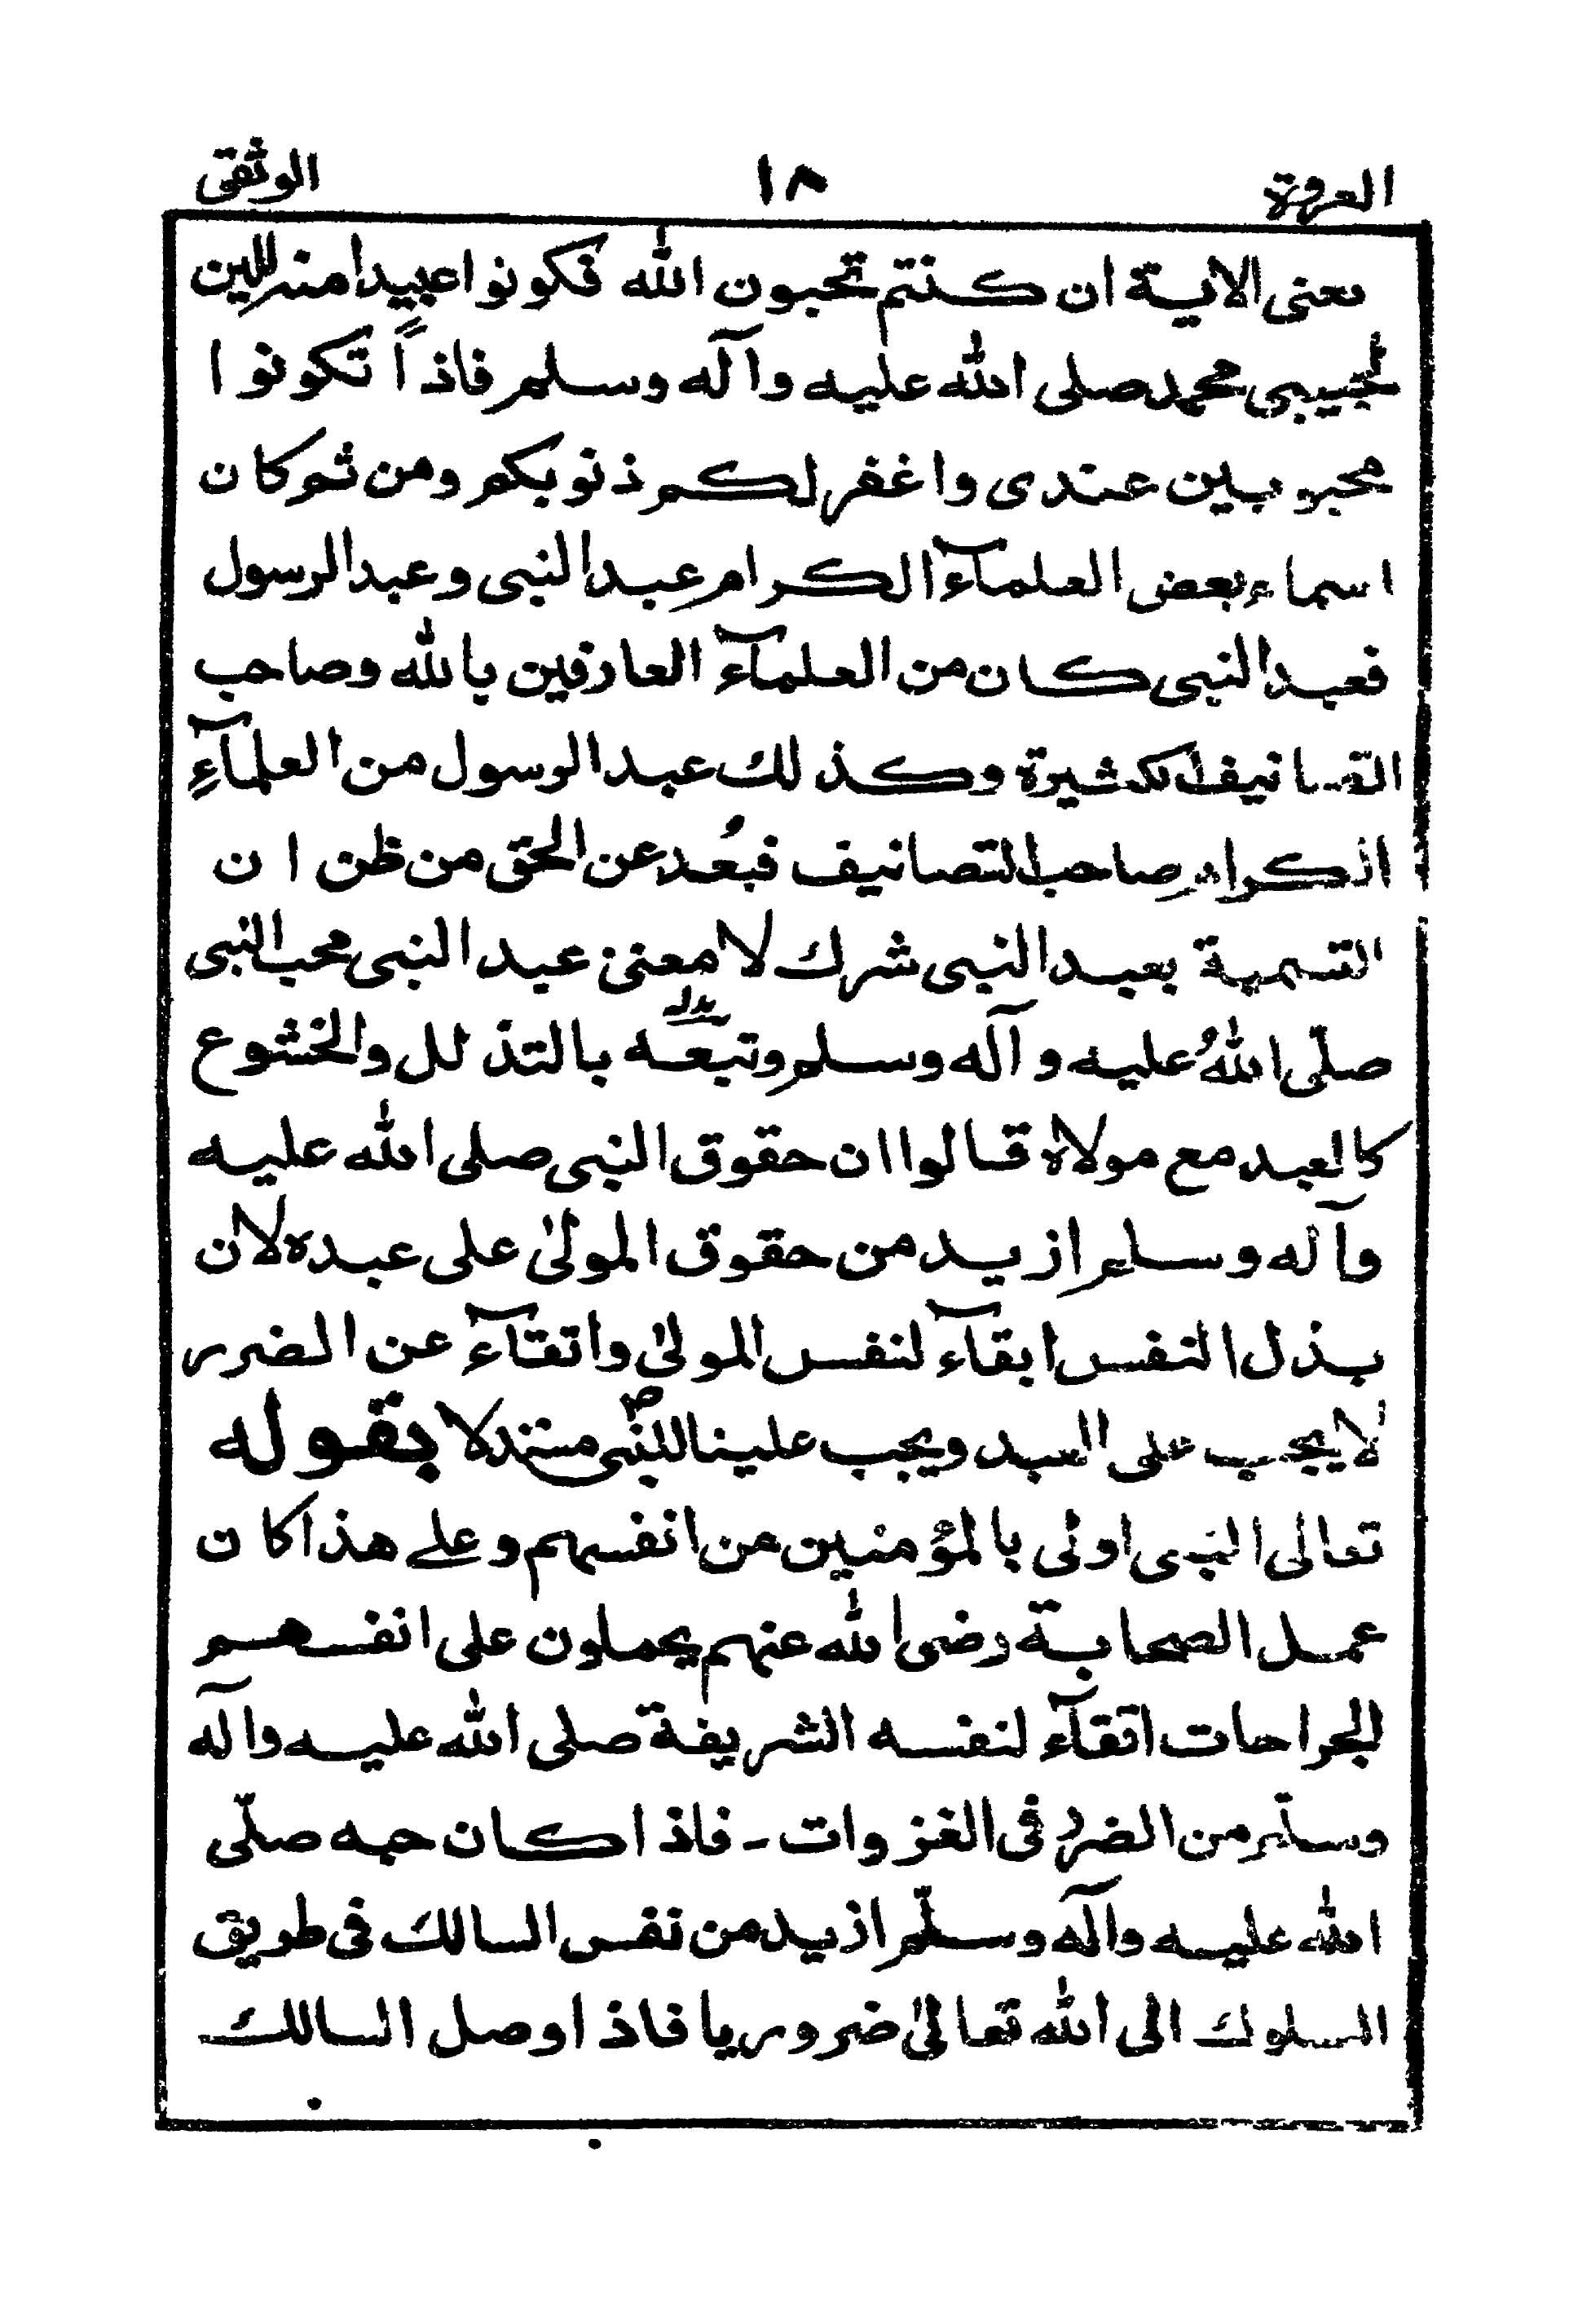 العروة ١٨ الوثقى
معنى الاية ان كنتم تحبون الله فكونوا عبيدا متذللين
لحبيبى محمد صلى الله عليه وآله وسلم فاذاً تكونوا
محبوبين عندى واغفرلكم ذنوبكم ومن ثم كان
اسماء بعض العلمآء الكرام عبد النبى وعبد الرسول
فعبد النبى كان من العلمآء العارفين بالله وصاحب
التصانيف الكثيرة وكذلك عبد الرسول من العلمآءِ
الكرام صاحب التصانيف فبُعد عن الحق من ظن ان
التسمية بعبد النبى شرك لا معنى عبد النبى محب النبى
صلّى اللهُ عليه وآله وسلم وتبعه بالتذلل والخشوع
كالعبد مع مولاه قالوا ان حقوق النبى صلى الله عليه
وآله وسلم ازيد من حقوق المولىٰ على عبده لان
بذل النفس ابقآء لنفس المولىٰ واتقآء عن الضرر
لا يجب على العبد ويجب علينا للنبىؐ مستدلا بقوله
تعالى النبى اولى بالمؤمنين من انفسهم وعلے هذا كان
عمل الصحابة رضى الله عنهم يحملون على انفسهم
الجراحات اتقآء لنفسه الشريفة صلى الله عليه وآله
وسلّم من الضرر فى الغزوات - فاذا كان حبه صلّى
الله عليه وآله وسلّم ازيد من نفس السالك فى طريق
السلوك الى الله تعالىٰ ضروريا فاذا وصل السالك